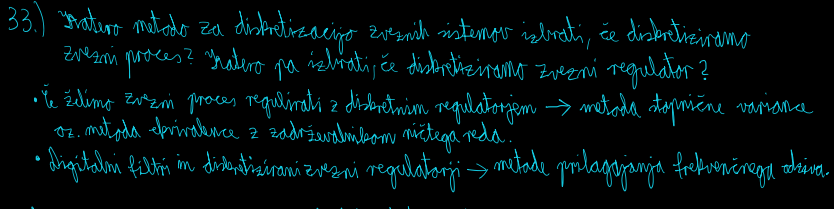 33.) Katero metodo za diskretizacijo zveznih sistemov izbrati, če diskretiziramo
zvezni proces? Katero pa izbrati, če diskretiziramo zvezni regulator?
• Če želimo zvezni proces regulirati z diskretnim regulatorjem → metoda stopnične variance
oz. metoda ekvivalence z zadrževalnikom ničtega reda.
• digitalni filtri in diskretizirani zvezni regulatorji → metode prilagajanja frekvenčnega odziva.